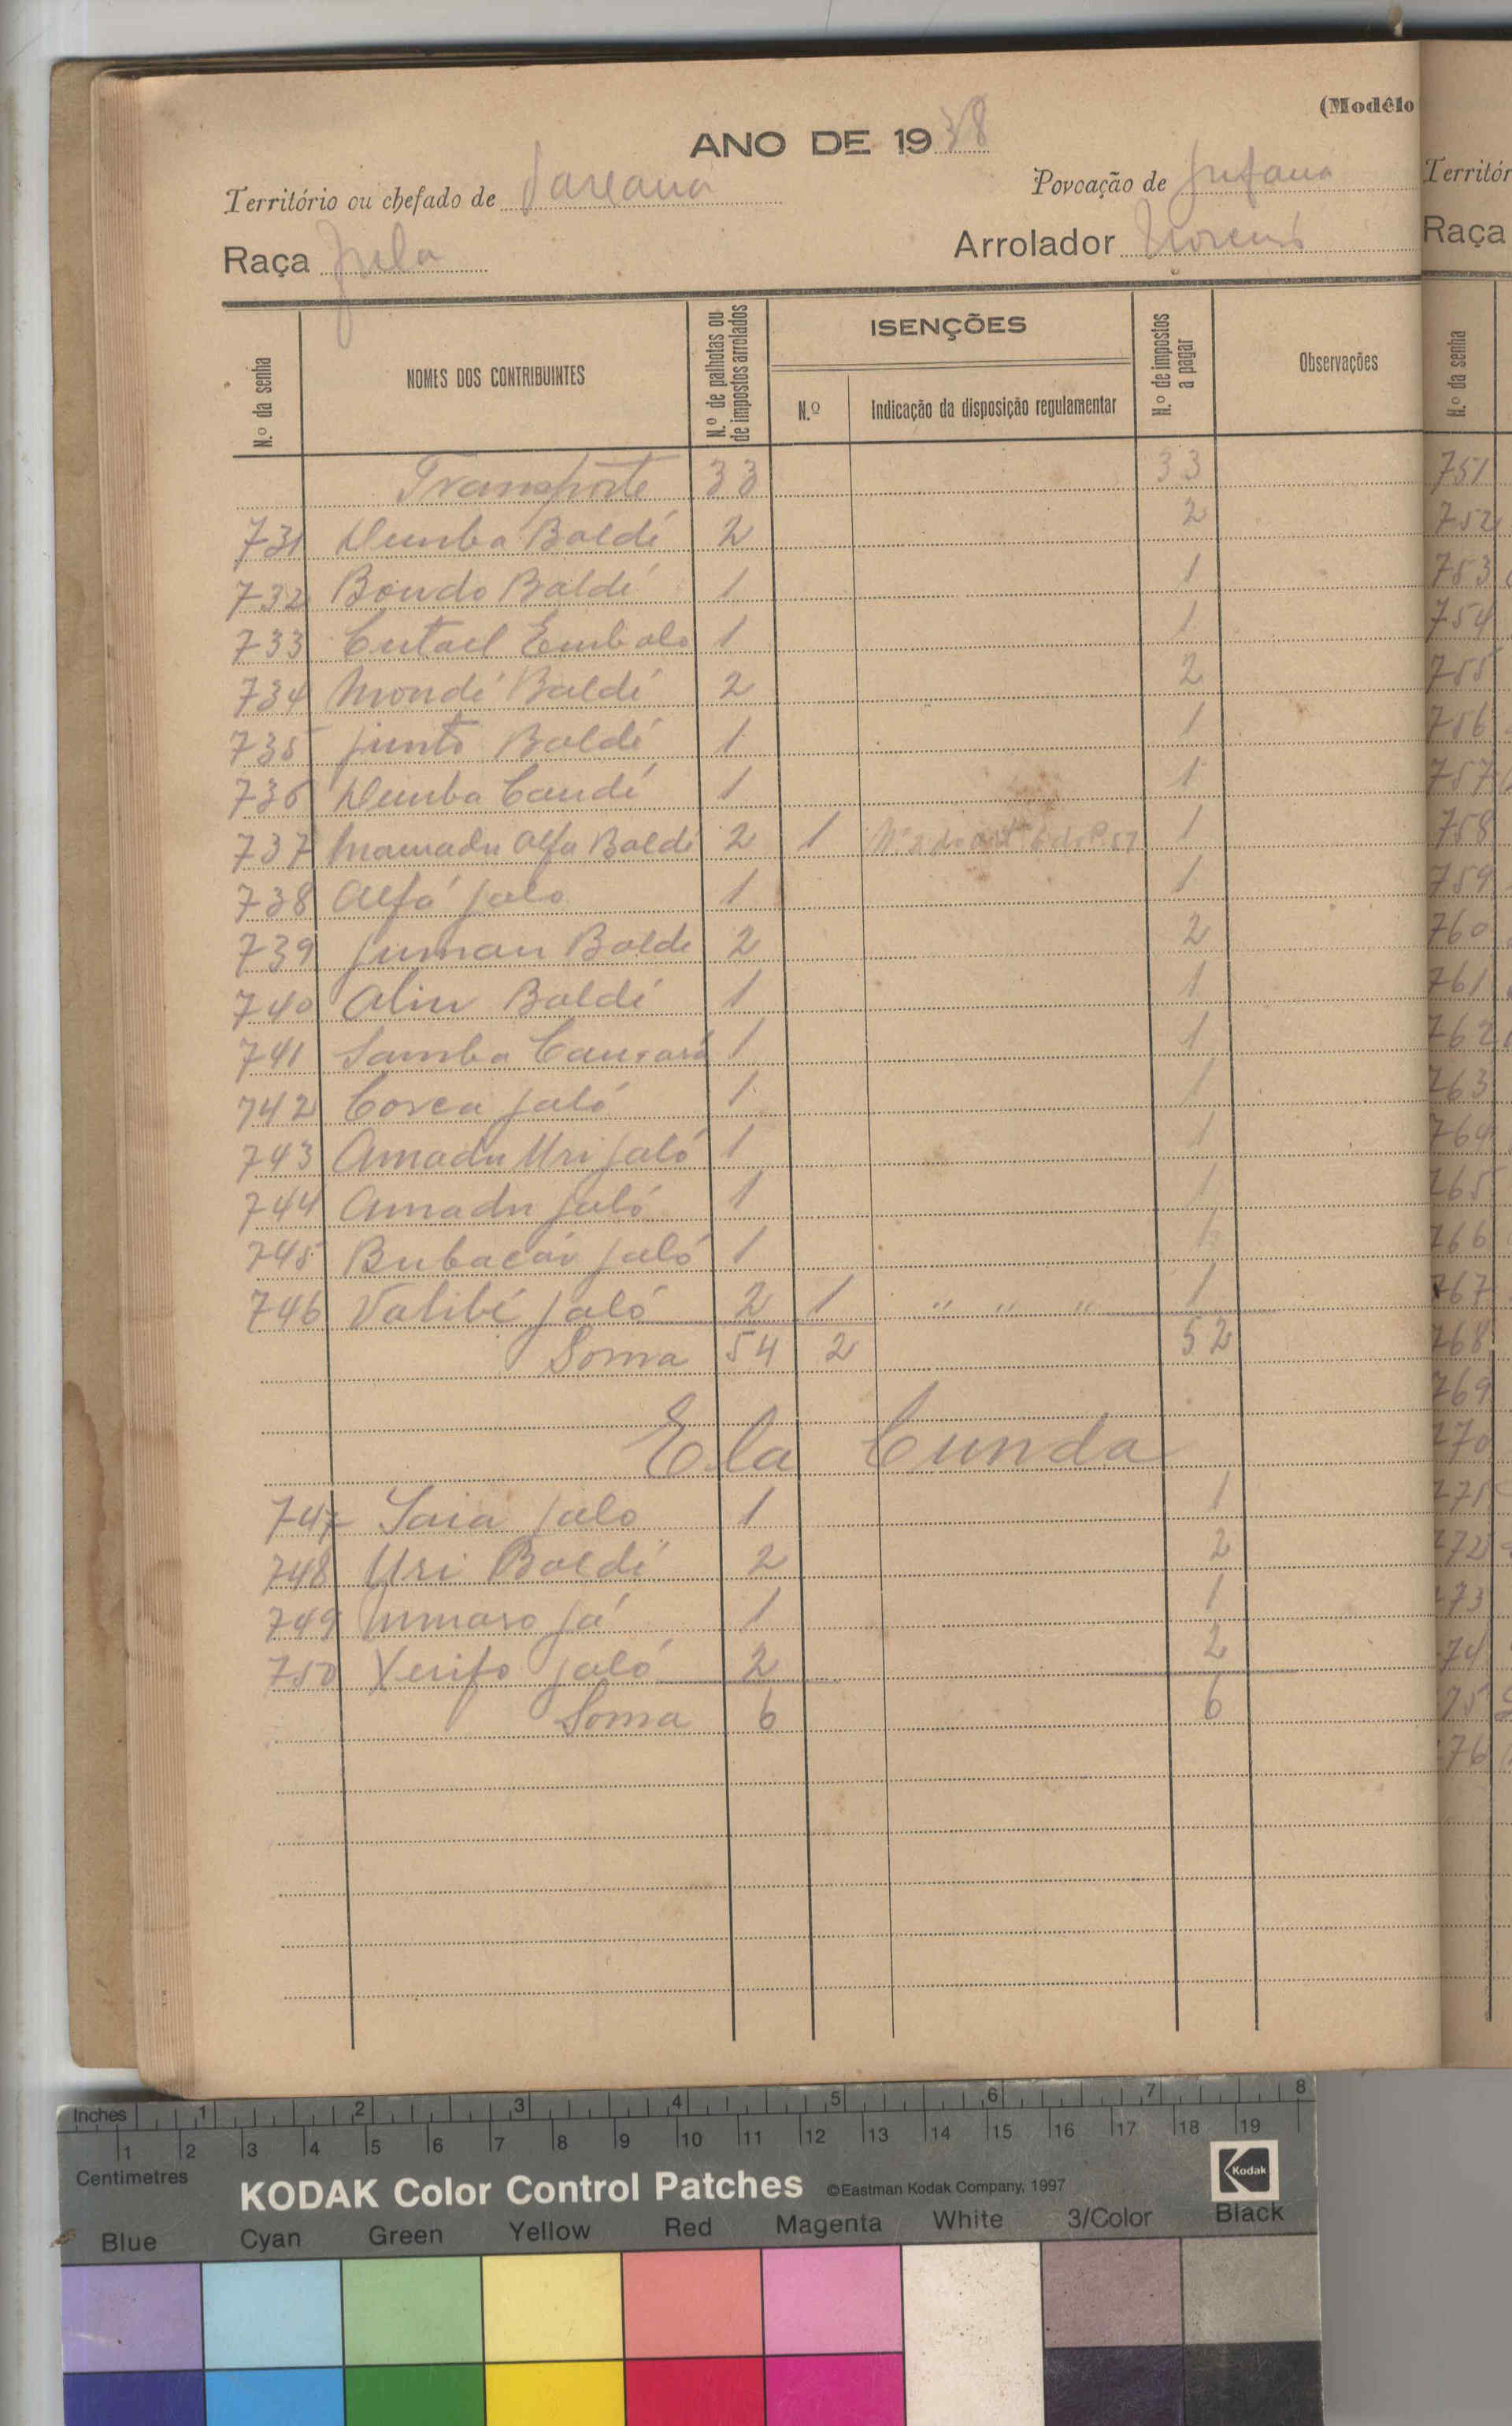 (Modêlo
ANO DE 1938
Território ou chefado de
Povoação de
Raça Fula
Arrolador
N.º da senha
NOMES DOS CONTRIBUINTES
N.º de palhotas ou de impostos arrolados
ISENÇÕES
N.º
Indicação da disposição regulamentar
N.º de impostos a pagar
Observações
Transporte 33 33
731 Demba Baldé 2 2
732 Boudo Baldé 1 1
733 Embalo 1 1
734 Mondé Baldé 2 2
735 Baldé 1 1
736 Demba Candé 1 1
737 Mamadu Alfa Baldé 2 1 1
738 Alfá Jalo 1 1
739 Baldé 2 2
740 Aliu Baldé 1 1
741 Samba 1 1
742 Jaló 1 1
743 Amadu Uri Jaló 1 1
744 Amadu Jaló 1 1
745 Bubacár Jaló 1 1
746 Jaló 2 1 " " " 1
Soma 54 2 52
Ela Cunda
747 Saia Jalo 1 1
748 Uri Baldé 2 2
749 Já 1 1
750 Xerifo Jaló 2 2
Soma 6 6
Territór
Raça
N.º da senha
751
752
753
754
755
756
757
758
759
760
761
762
763
764
765
766
767
768
769
770
Inches 1 2 3 4 5 6 7 8
1 2 3 4 5 6 7 8 9 10 11 12 13 14 15 16 17 18 19
Centimetres
KODAK Color Control Patches ©Eastman Kodak Company, 1997 Kodak
Blue Cyan Green Yellow Red Magenta White 3/Color Black